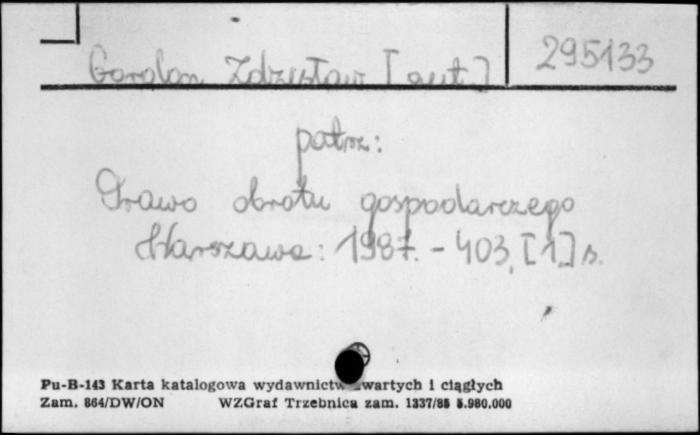 Gordon Zdzisław [aut.] 295133
patrz:
Prawo obrotu gospodarczego
Warszawa: 1987. - 403, [1] s.
Pu-B-143 Karta katalogowa wydawnictw zwartych i ciągłych
Zam. 864/DW/ON WZGraf Trzebnica zam. 1337/85 5.980.000